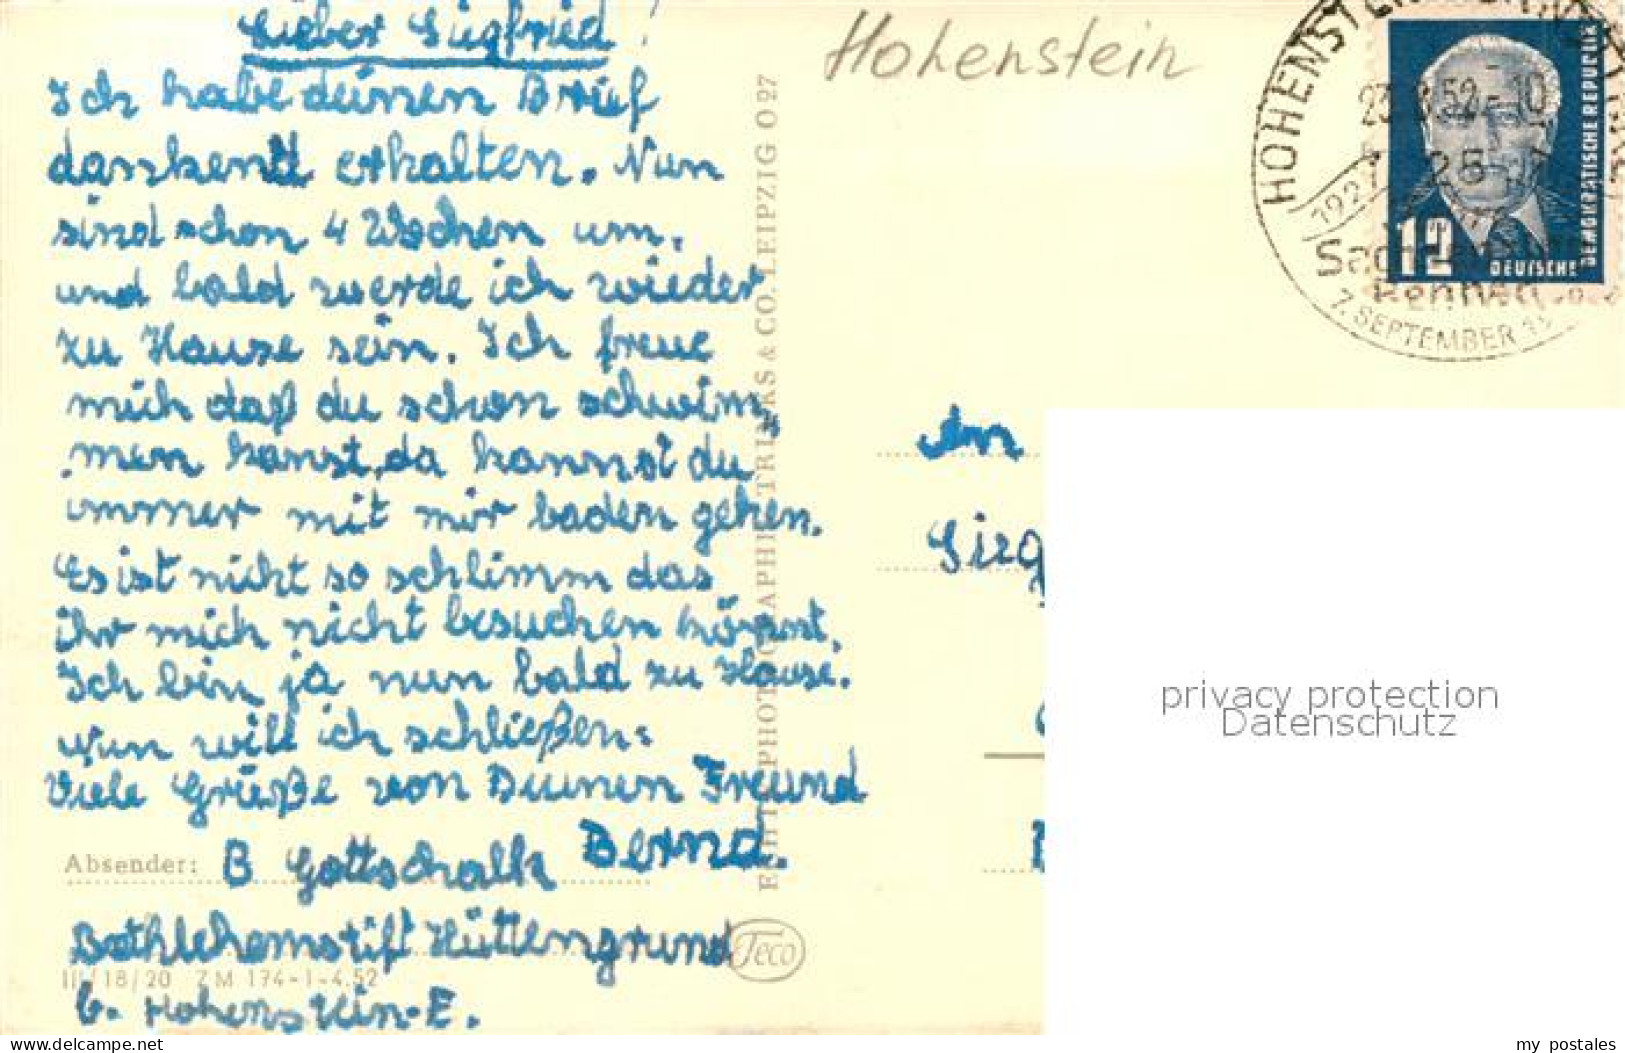 Lieber Siegfried!
Ich habe deinen Brief
dankend erhalten. Nun
sind schon 4 Wochen um,
und bald werde ich wieder
zu Hause sein. Ich freue
mich daß du schon schwim,
men kanst, da kannst du
immer mit mir baden gehen.
Es ist nicht so schlimm das
ihr mich nicht besuchen könnt.
Ich bin ja nun bald zu Hause.
Nun will ich schließen:
Viele Grüße von Deinen Freund
Bernd.
Absender: B Gottschalk
Bethlehemstift Hüttengrund
b. Hohenstein-E.
III/18/20 ZM 174-I-4.52
ECHTE PHOTOGRAPHIE TRINKS & CO. LEIPZIG O 27
Teco
Hohenstein
HOHENSTEIN
52-10
1927
25
Rennen
7. SEPTEMBER
12
DEUTSCHE
DEMOKRATISCHE REPUBLIK
An
Sieg
privacy protection
Datenschutz
www.delcampe.net
my_postales